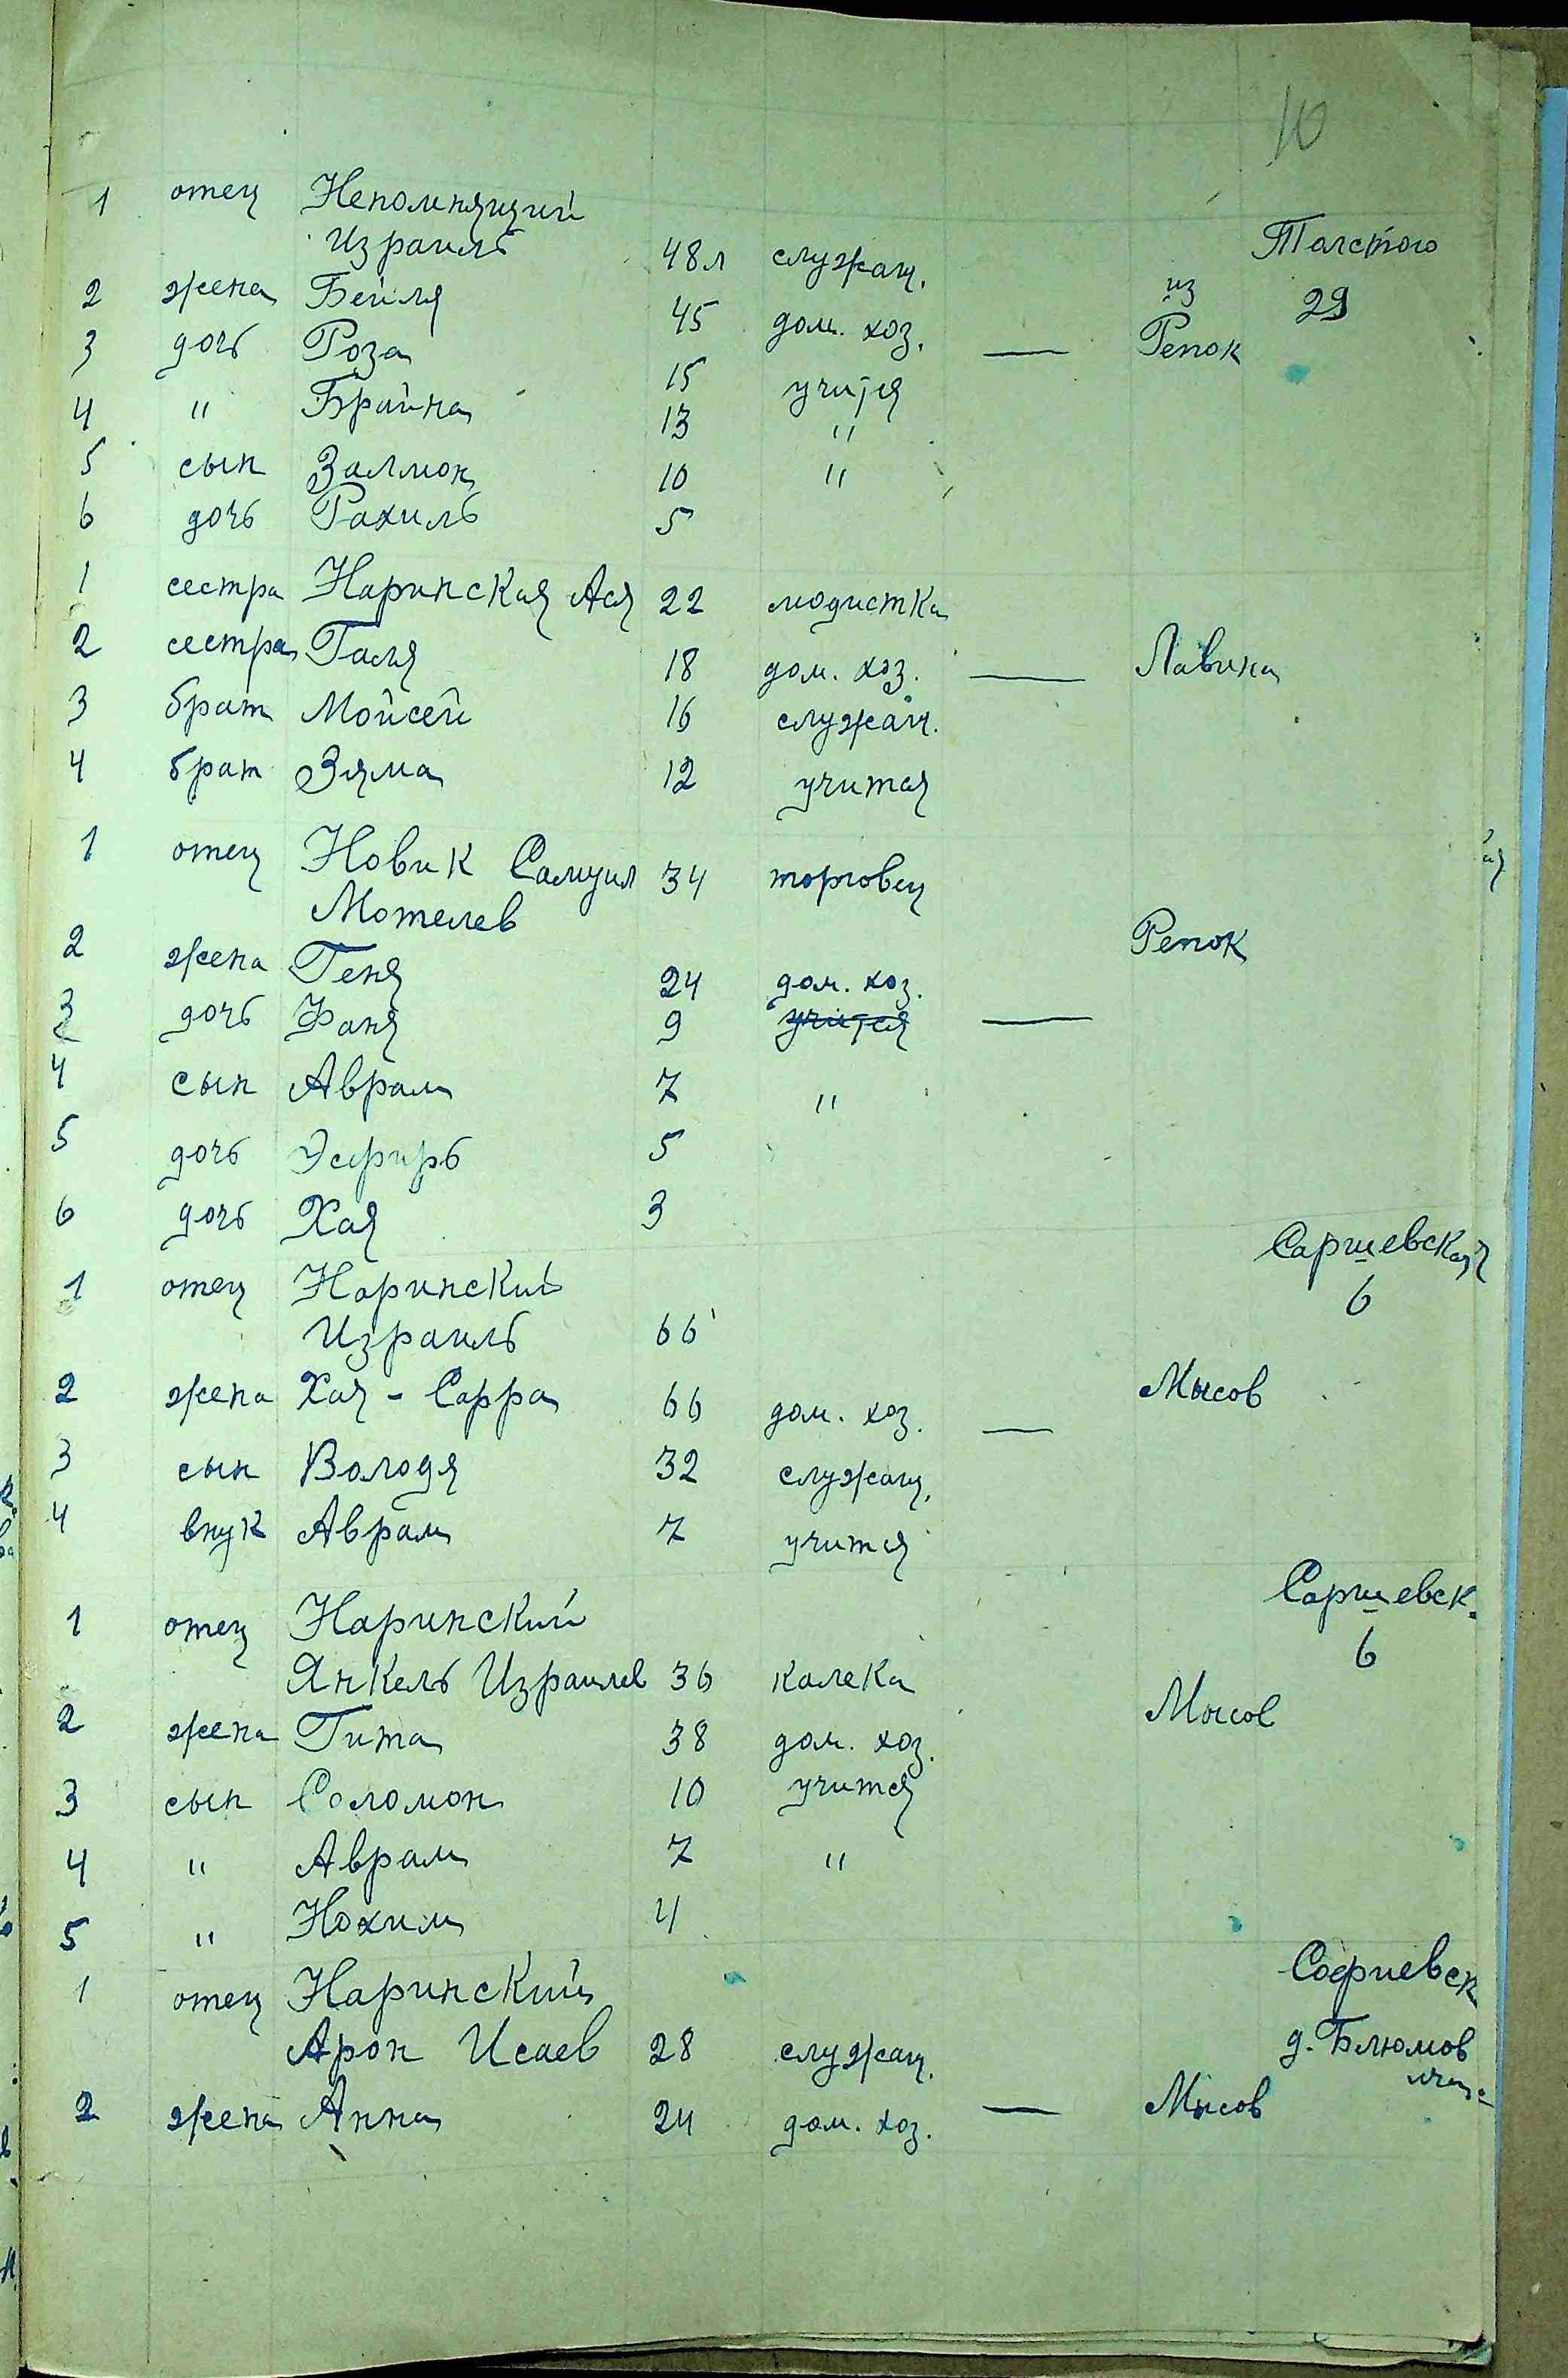 10
1 отец Непомнящий
Израиль 48л служащ. Толстого
2 жена Бейля 45 дом. хоз. из 29
3 дочь Роза 15 учится — Репок
4 " Брайна 13 "
5 сын Залмон 10 "
6 дочь Рахиль 5
1 сестра Наринская Ася 22 модистка
2 сестра Галя 18 дом. хоз. — Лавина
3 брат Мойсей 16 служащ.
4 брат Зяма 12 учится
1 отец Новик Самуил 34 торговец
Мотелев Репок
2 жена Геня 24 дом. хоз.
3 дочь Фаня 9 учится —
4 сын Аврам 7 "
5 дочь Эсфирь 5
6 дочь Хая 3
1 отец Наринский Сариевская
Израиль 66 6
2 жена Хая - Сарра 66 дом. хоз. — Мысов
3 сын Володя 32 служащ.
4 внук Аврам 7 учится
1 отец Наринский Сариевск.
Янкель Израилев 36 калека 6
2 жена Гита 38 дом. хоз. Мысов
3 сын Соломон 10 учится
4 " Аврам 7 "
5 " Нохим 4
1 отец Наринский Софиевск
Арон Исаев 28 служащ. д. Блюмов
2 жена Анна 24 дом. хоз. — Мысов